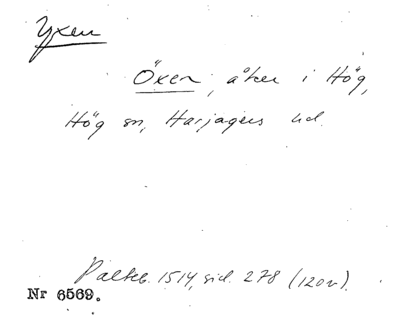 Yxen
Öxen, åker i Hög,
Hög sn, Harjagers hd.
Palteb. 1514, sid. 278 (120v).
Nr 6569.